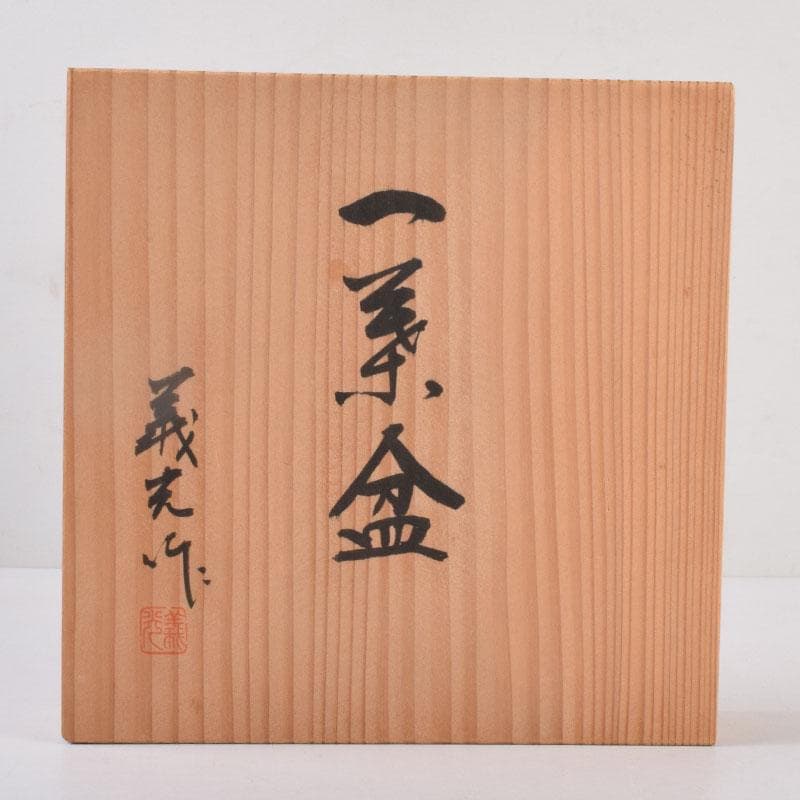 一葉盆
義光作